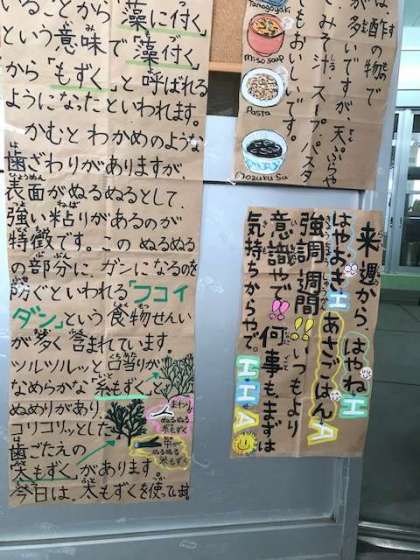 いることから「藻に付く」
という意味で「藻付く」
から「もずく」と呼ばれる
ようになったといわれます。
かむとわかめのような
歯ざわりがありますが、
表面がぬるぬるとして、
強い粘りがあるのが
特徴です。このぬるぬる
の部分に、ガンになるのを
防ぐといわれる「フコイ
ダン」という食物せんい
が多く含まれています。
ツルツルッと口当りが
なめらかな「糸もずく」と
ぬめりがあり、
コリコリッとした
歯ごたえの
「太もずく」があります。
今日は、太もずくを使ってます。
ぬるぬる
は酢の物で
が多いですが、天ぷらや
みそ汁、スープ、パスタ
もおいしいです。
Miso soup
Pasta
Mozuku Su
来週から「はねH
はやおきH あさごはんA」
強調週間!!いつもより
意識やで!!何事も、まずは
気持ちからやで。
H・H・A